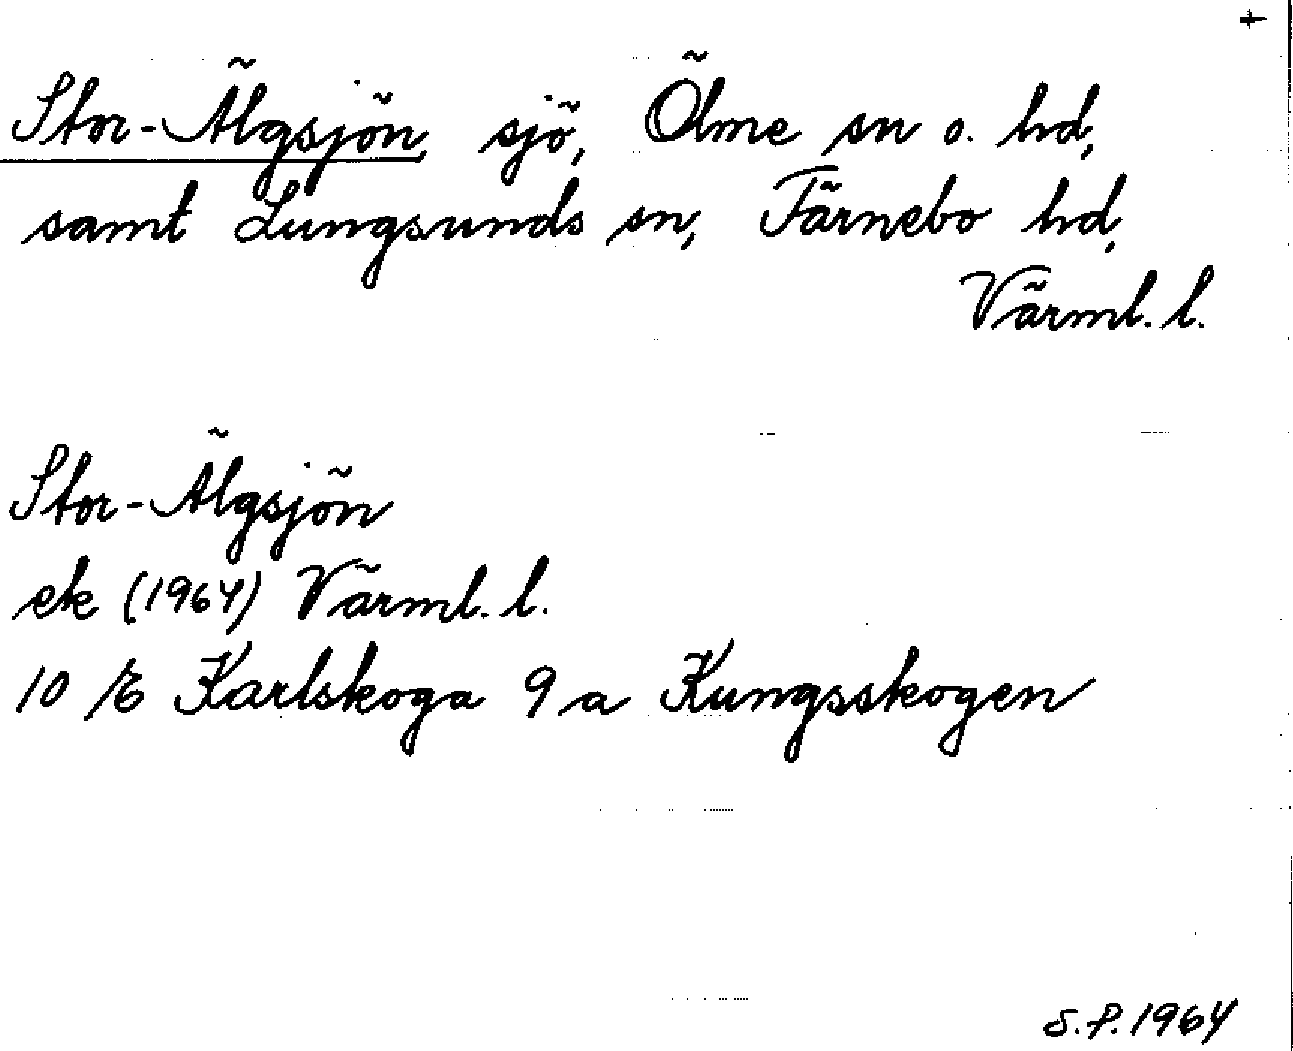 +
Stor-Älgsjön, sjö, Ölme sn o. hd,
samt Lungsunds sn, Färnebo hd,
Värml. l.
Stor-Älgsjön
ek (1964) Värml. l.
10 E Karlskoga 9 a Kungsskogen
S.P. 1964